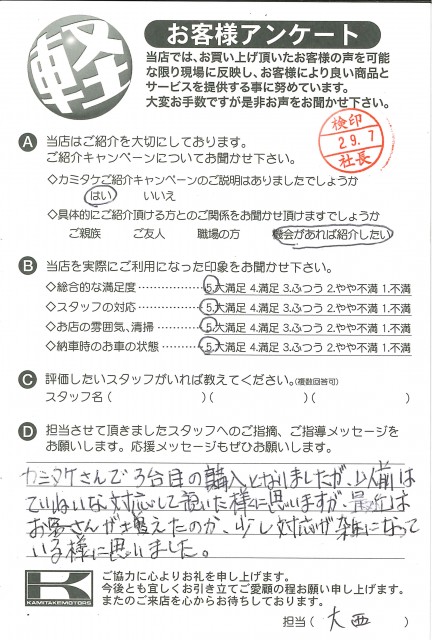 軽
お客様アンケート
当店では、お買い上げ頂いたお客様の声を可能
な限り現場に反映し、お客様により良い商品と
サービスを提供する事に努めています。
大変お手数ですが是非お声をお聞かせ下さい。
検印
29.7
社長
A 当店はご紹介を大切にしております。
ご紹介キャンペーンについてお聞かせ下さい。
◇カミタケご紹介キャンペーンのご説明はありましたでしょうか
はい いいえ
◇具体的にご紹介頂ける方とのご関係をお聞かせ頂けますでしょうか
ご親族 ご友人 職場の方 機会があれば紹介したい
B 当店を実際にご利用になった印象をお聞かせ下さい。
◇総合的な満足度………………5.大満足 4.満足 3.ふつう 2.やや不満 1.不満
◇スタッフの対応………………5.大満足 4.満足 3.ふつう 2.やや不満 1.不満
◇お店の雰囲気、清掃…………5.大満足 4.満足 3.ふつう 2.やや不満 1.不満
◇納車時のお車の状態…………5.大満足 4.満足 3.ふつう 2.やや不満 1.不満
C 評価したいスタッフがいれば教えてください。(複数回答可)
スタッフ名( )( )( )
D 担当させて頂きましたスタッフへのご指摘、ご指導メッセージを
お願いします。応援メッセージもぜひお願いします。
カミタケさんで3台目の購入となりましたが、以前は
ていねいな対応して頂いた様に思いますが、最近は
お客さんが増えたのか、少し対応が雑になって
いる様に思いました。
K
KAMITAKE MOTORS
ご協力に心よりお礼を申し上げます。
今後とも宜しくお引き立てご愛顧の程お願い申し上げます。
またのご来店を心からお待ちしております。
担当( 大西 )